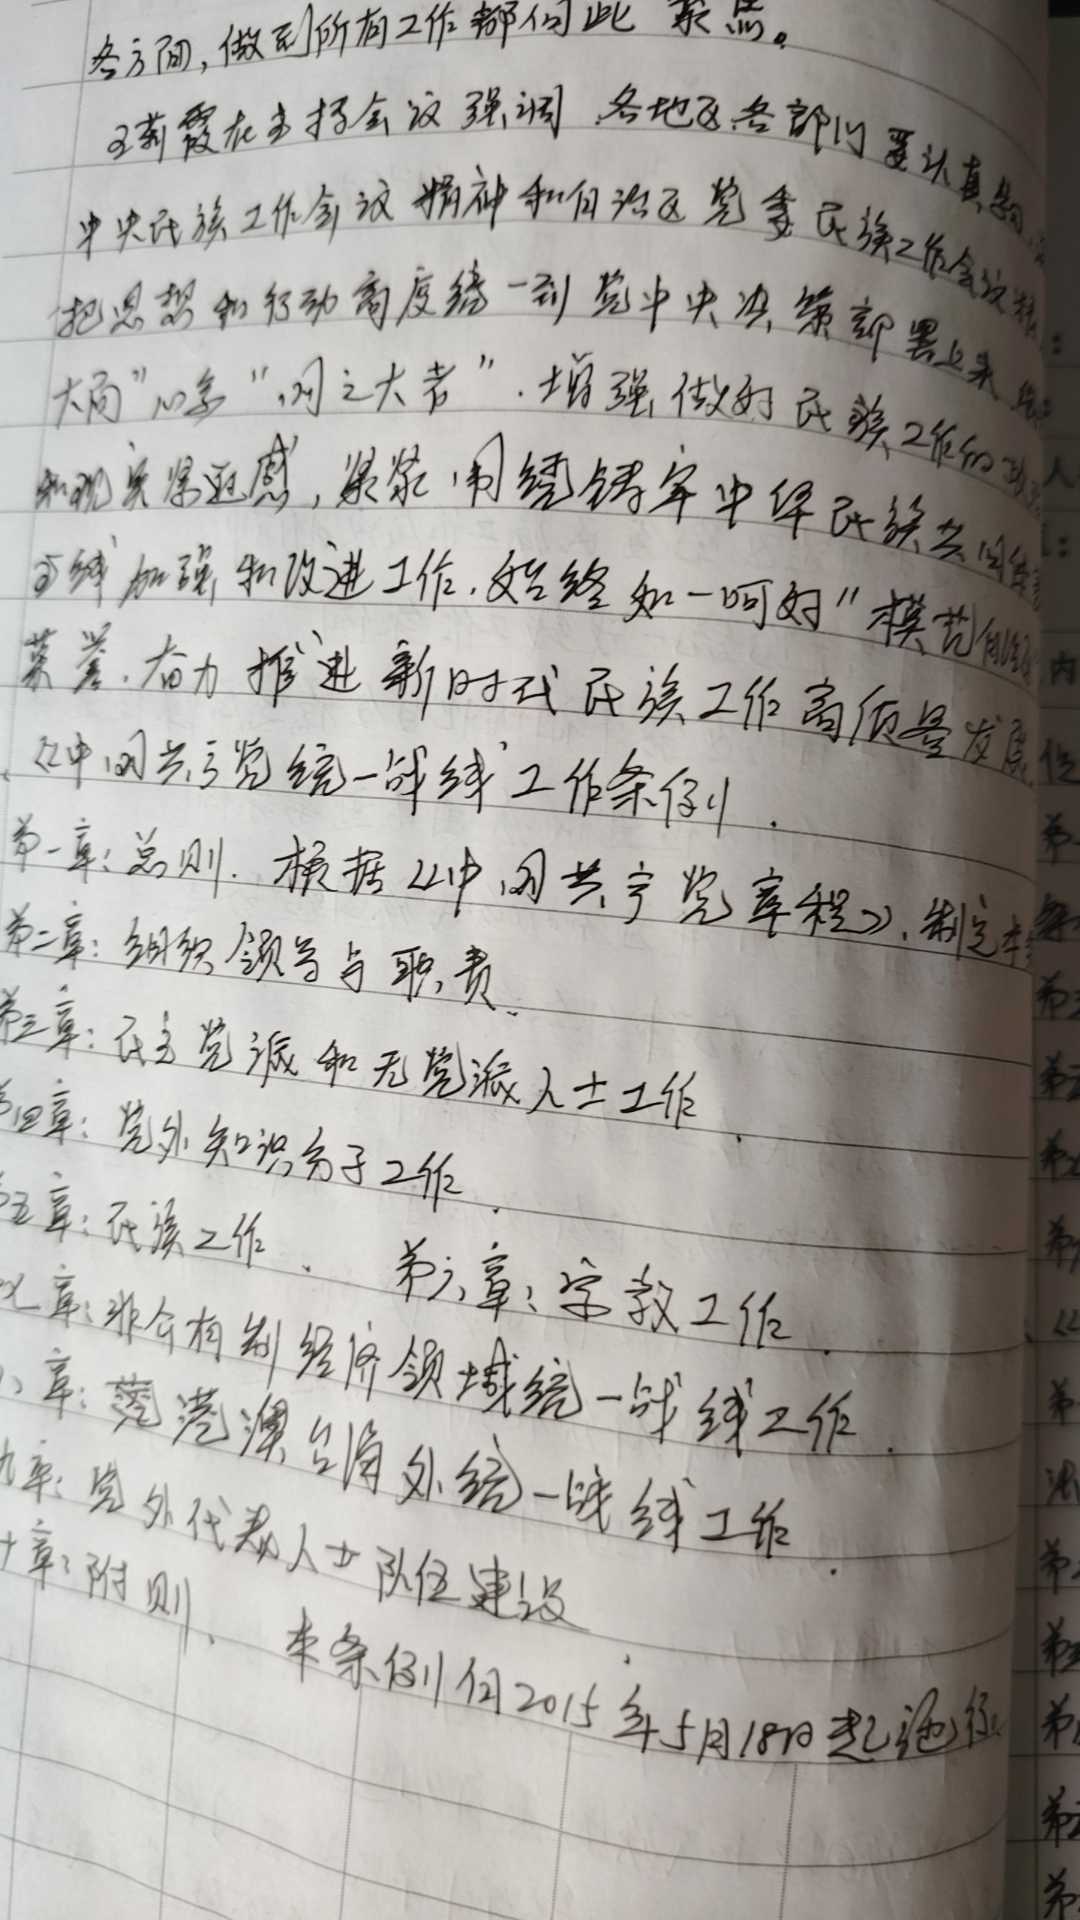 各方面,做到所有工作都向此聚焦。
王莉霞在主持会议强调.各地区各部门要认真
中央民族工作会议精神和自治区党委民族工作会议精
把思想和行动高度统一到党中央决策部署上来
大局"心系"国之大者".增强做好民族工作的政
和现实紧迫感,紧紧围绕铸牢中华民族共同体
主线加强和改进工作.始终如一呵好"模范自治区
荣誉.奋力推进新时代民族工作高质量发展
《中国共产党统一战线工作条例.
第一章:总则.根据《中国共产党章程》.制定本
第二章:组织领导与职责.
第三章:民主党派和无党派人士工作.
第四章:党外知识分子工作.
第五章:民族工作. 第六章:宗教工作.
七章:非公有制经济领域统一战线工作.
八章:港澳台海外统一战线工作.
九章:党外代表人士队伍建设.
十章:附则. 本条例自2015年5月18日起施行.
内
第一
第三
第
第
第
第
第
第